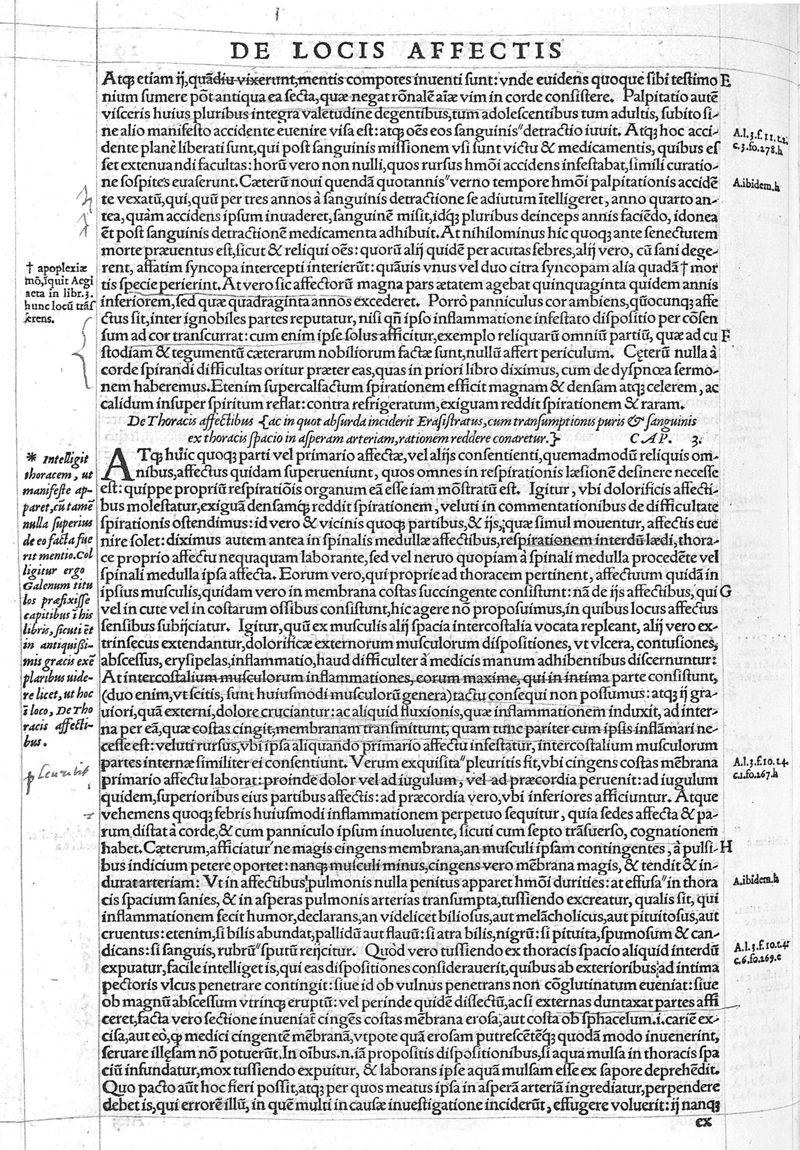 DE LOCIS AFFECTIS
Atqꝫ etiam ij, quãdiu vixerunt, mentis compotes inuenti sunt: vnde euidens quoque sibi testimo E
nium sumere põt antiqua ea secta, quæ negat rõnalẽ aĩæ vim in corde consistere. Palpitatio autẽ
visceris huius pluribus integra valetudine degentibus, tum adolescentibus tum adultis, subito si-
ne alio manifesto accidente euenire visa est: atqꝫ oẽs eos sanguinis" detractio iuuit. Atqꝫ hoc acci-
dente planè liberati sunt, qui post sanguinis missionem vsi sunt victu & medicamentis, quibus es
set extenuandi facultas: horũ vero non nulli, quos rursus hmõi accidens infestabat, simili curatio-
ne sospites euaserunt. Cæterũ noui quendã quotannis" verno tempore hmõi palpitationis accidẽ
te vexatũ, qui, quũ per tres annos à sanguinis detractione se adiutum ĩtelligeret, anno quarto an-
tea, quàm accidens ipsum inuaderet, sanguinẽ misit, idqꝫ pluribus deinceps annis faciẽdo, idonea
ẽt post sanguinis detractionẽ medicamenta adhibuit. At nihilominus hic quoqꝫ ante senectutem
morte præuentus est, sicut & reliqui oẽs: quorũ alij quidẽ per acutas febres, alij vero, cũ sani dege-
rent, affatim syncopa intercepti interierũt: quãuis vnus vel duo citra syncopam alia quadã † mor
tis specie perierint. At vero sic affectorũ magna pars ætatem agebat quinquaginta quidem annis
inferiorem, sed quæ quadraginta annos excederet. Porrò panniculus cor ambiens, qũocunqꝫ affe
ctus sit, inter ignobiles partes reputatur, nisi qñ ipso inflammatione infestato dispositio per cõsen
sum ad cor transcurrat: cum enim ipse solus afficitur, exemplo reliquarũ omniũ partiũ, quæ ad cu F
stodiam & tegumentũ cæterarum nobiliorum factæ sunt, nullũ affert periculum. Cęterũ nulla à
corde spirandi difficultas oritur præter eas, quas in priori libro diximus, cum de dyspnœa sermo-
nem haberemus. Etenim supercalfactum spirationem efficit magnam & densam atqꝫ celerem, ac
calidum insuper spiritum reflat: contra refrigeratum, exiguam reddit spirationem & raram.
De Thoracis affectibus {ac in quot absurda inciderit Erasistratus, cum transumptionis puris & sanguinis
ex thoracis spacio in asperam arteriam, rationem reddere conaretur.} CAP. 3.
ATqꝫ hũic quoqꝫ parti vel primario affectæ, vel alijs consentienti, quemadmodũ reliquis om-
nibus, affectus quidam superueniunt, quos omnes in respirationis læsionẽ desinere necesse
est: quippe propriũ respiratiõis organum eã esse iam mõstratũ est. Igitur, vbi dolorificis affecti-
bus molestatur, exiguã densamqꝫ reddit spirationem, veluti in commentationibus de difficultate
spirationis ostendimus: id vero & vicinis quoqꝫ partibus, & ijs, quæ simul mouentur, affectis eue
nire solet: diximus autem antea in spinalis medullæ affectibus, respirationem interdũ lædi, thora-
ce proprio affectu nequaquam laborante, sed vel neruo quopiam à spinali medulla procedẽte vel
spinali medulla ipsa affecta. Eorum vero, qui proprie ad thoracem pertinent, affectuum quidã in
ipsius musculis, quidam vero in membrana costas succingente consistunt: nã de ijs affectibus, qui G
vel in cute vel in costarum ossibus consistunt, hic agere nõ proposuimus, in quibus locus affectus
sensibus subijciatur. Igitur, quũ ex musculis alij spacia intercostalia vocata repleant, alij vero ex-
trinsecus extendantur, dolorificæ externorum musculorum dispositiones, vt vlcera, contusiones,
abscessus, erysipelas, inflammatio, haud difficulter à medicis manum adhibentibus discernuntur:
At intercostalium musculorum inflammationes, eorum maxime, qui in intima parte consistunt,
(duo enim, vt scitis, sunt huiusmodi musculorũ genera) tactu consequi non possumus: atqꝫ ij gra-
uiori, quã externi, dolore cruciantur: ac aliquid fluxionis, quæ inflammationem induxit, ad inter-
na per eã, quæ costas cingit, membranam transmittunt, quam tunc pariter cum ipsis inflãmari ne-
cesse est: veluti rursus, vbi ipsa aliquando primario affectu infestatur, intercostalium musculorum
partes internæ similiter ei consentiunt. Verum exquisita" pleuritis fit, vbi cingens costas mẽbrana
primario affectu laborat: proinde dolor vel ad iugulum, vel ad præcordia peruenit: ad iugulum
quidem, superioribus eius partibus affectis: ad præcordia vero, vbi inferiores afficiuntur. Atque
vehemens quoqꝫ febris huiusmodi inflammationem perpetuo sequitur, quia sedes affecta & pa-
rum distat à corde, & cum panniculo ipsum inuoluente, sicuti cum septo trãsuerso, cognationem
habet. Cæterum, afficiatur ne magis cingens membrana, an musculi ipsam contingentes, à pulsi- H
bus indicium petere oportet: nanqꝫ musculi minus, cingens vero mẽbrana magis, & tendit & in-
durat arteriam: Vt in affectibus pulmonis nulla penitus apparet hmõi durities: at effusa" in thora
cis spacium sanies, & in asperas pulmonis arterias transumpta, tussiendo excreatur, qualis sit, qui
inflammationem fecit humor, declarans, an videlicet biliosus, aut melãcholicus, aut pituitosus, aut
cruentus: etenim, si bilis abundat, pallidũ aut flauũ: si atra bilis, nigrũ: si pituita, spumosum & can-
dicans: si sanguis, rubrũ" sputũ reijcitur. Quòd vero tussiendo ex thoracis spacio aliquid interdũ
expuatur, facile intelliget is, qui eas dispositiones considerauerit, quibus ab exterioribus ad intima
pectoris vlcus penetrare contingit: siue id ob vulnus penetrans non cõglutinatum eueniat: siue
ob magnũ abscessum vtrinqꝫ eruptũ: vel perinde quidẽ dissectũ, ac si externas duntaxat partes affi
ceret, facta vero sectione inueniat cingẽs costas mẽbrana erosa, aut costa ob sphacelum .i. cariẽ ex-
cisa, aut eò, qꝫ medici cingentẽ mẽbranã, vtpote quã erosam putrescẽtẽqꝫ quodã modo inuenerint,
seruare illęsam nõ potuerũt. In oĩbus .n. iã propositis dispositionibus, si aqua mulsa in thoracis spa
ciũ infundatur, mox tussiendo expuitur, & laborans ipse aquã mulsam esse ex sapore deprehẽdit.
Quo pacto aũt hoc fieri possit, atqꝫ per quos meatus ipsa in asperã arteriã ingrediatur, perpendere
debet is, qui errorẽ illũ, in quẽ multi in causæ inuestigatione inciderũt, effugere voluerit: ij nanqꝫ
ex
† apoplexiæ
mõ, ĩquit Aegi
neta in libr. 3.
hunc locũ trãs
ferens.
* Intelligit
thoracem, ut
manifeste ap-
paret, cũ tamẽ
nulla superius
de eo facta fue
rit mentio. Col
ligitur ergo
Galenum titu
los præfixisse
capitibus ĩ his
libris, sicuti ẽt
in antiquissi-
mis græcis exẽ
plaribus uide-
re licet, ut hoc
ĩ loco, De Tho
racis affecti-
bus.
A.l.3.f.11.t.1.
c.3.fo.278.h
A.ibidem.h
A.l.3.f.10.t.4.
c.1.fo.267.h
A.ibidem.h
A.l.3.f.10.t.4.
c.6.fo.269.c